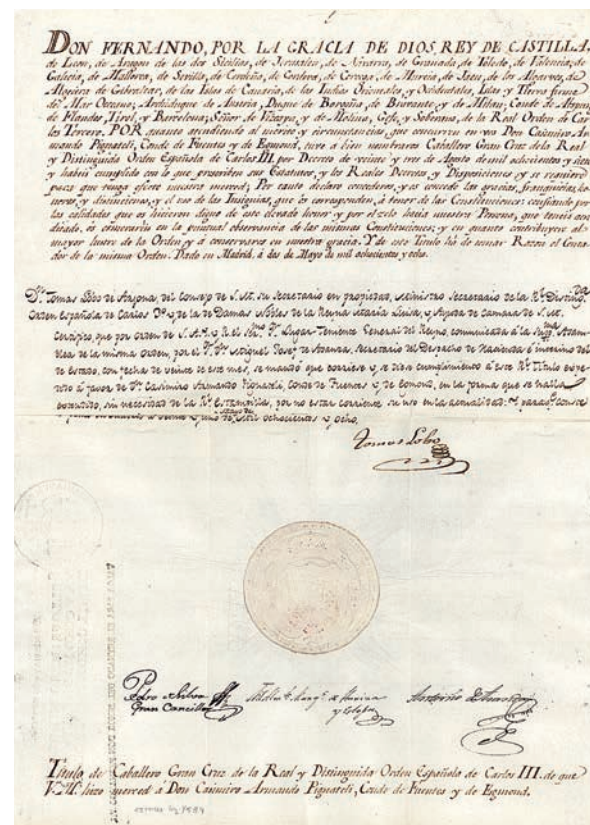 DON FERNANDO, POR LA GRACIA DE DIOS, REY DE CASTILLA,
de Leon, de Aragon de las dos Sicilias, de Jerusalen, de Navarra, de Granada, de Toledo, de Valencia, de
Galicia, de Mallorca, de Sevilla, de Cerdeña, de Cordova, de Corcega, de Murcia, de Jaen, de los Algarves, de
Algecira de Gibraltar, de las Islas de Canaria, de las Indias Orientales y Occidentales, Islas y Tierra firme
del Mar Oceano; Archiduque de Austria, Duque de Borgoña, de Bravante y de Milan; Conde de Abspurg,
de Flandes, Tirol, y Barcelona; Señor de Vizcaya y de Molina, Gefe, y Soberano, de la Real Orden de Car
los Tercero. POR quanto atendiendo al merito y circunstancias que concurren en vos Don Casimiro Ar
mando Pignateli, Conde de Fuentes y de Egmond, tuve à bien nombraros Caballero Gran Cruz de la Real
y Distinguida Orden Española de Carlos III. por Decreto de veinte y tres de Agosto de mil ochocientos y siete
y habeis cumplido con lo que prescriben sus Estatutos, y los Reales Decretos, y Disposiciones q.e se requiere
para que tenga efecto nuestra merced; Por tanto declaro concederos, y os concede las gracias, franquicias, ho
nores, y distinciones, y el uso de las Insignias, que os corresponden, à tenor de las Constituciones: confiando por
las calidades que os hicieron digno de este elevado honor y por el zelo hacia nuestra Persona, que teneis acre
ditado, os esmerareis en la puntual observancia de las mismas Constituciones; y en quanto contribuye al
mayor lustre de la Orden y à conservaros en nuestra gracia. Y de este Titulo hà de tomar Razon el Conta
dor de la misma Orden. Dado en Madrid, à dos de Mayo de mil ochocientos y ocho.
D.n Tomas Lobo de Arjona, del Consejo de S. M. su Secretario en propiedad, Ministro Secretario de la R.l Disting.da
Orden Española de Carlos 3.º y de la de Damas Nobles de la Reyna Maria Luisa, y Ayuda de Camara de S. M.
Certifico, que por orden de S. A. I. y R. el Ser.mo S.r Lugar-Teniente General del Reyno, comunicada à la Sup.ma Asam
blea de la misma orden, por el S.r D.n Miguel Josef de Azanza, Secretario del Despacho de Hacienda è interino del
de Estado, con fecha de veinte de este mes, se mandó que corriese y se diera cumplimiento à este R.l Titulo expe
dido à favor de D.n Casimiro Armando Pignateli, Conde de Fuentes y de Egmond, en la forma que se halla
extendido, sin necesidad de la R.l Estampilla, por no estar corriente su uso en la actualidad: y para q.e conste
Mil ochocientos y ocho.
Tomas Lobo
Pedro de Silva
Gran Canciller
Antonio
Título de Caballero Gran Cruz de la Real y Distinguida Orden Española de Carlos III. de que
V. M. hizo merced à Don Casimiro Armando Pignateli, Conde de Fuentes y de Egmond.